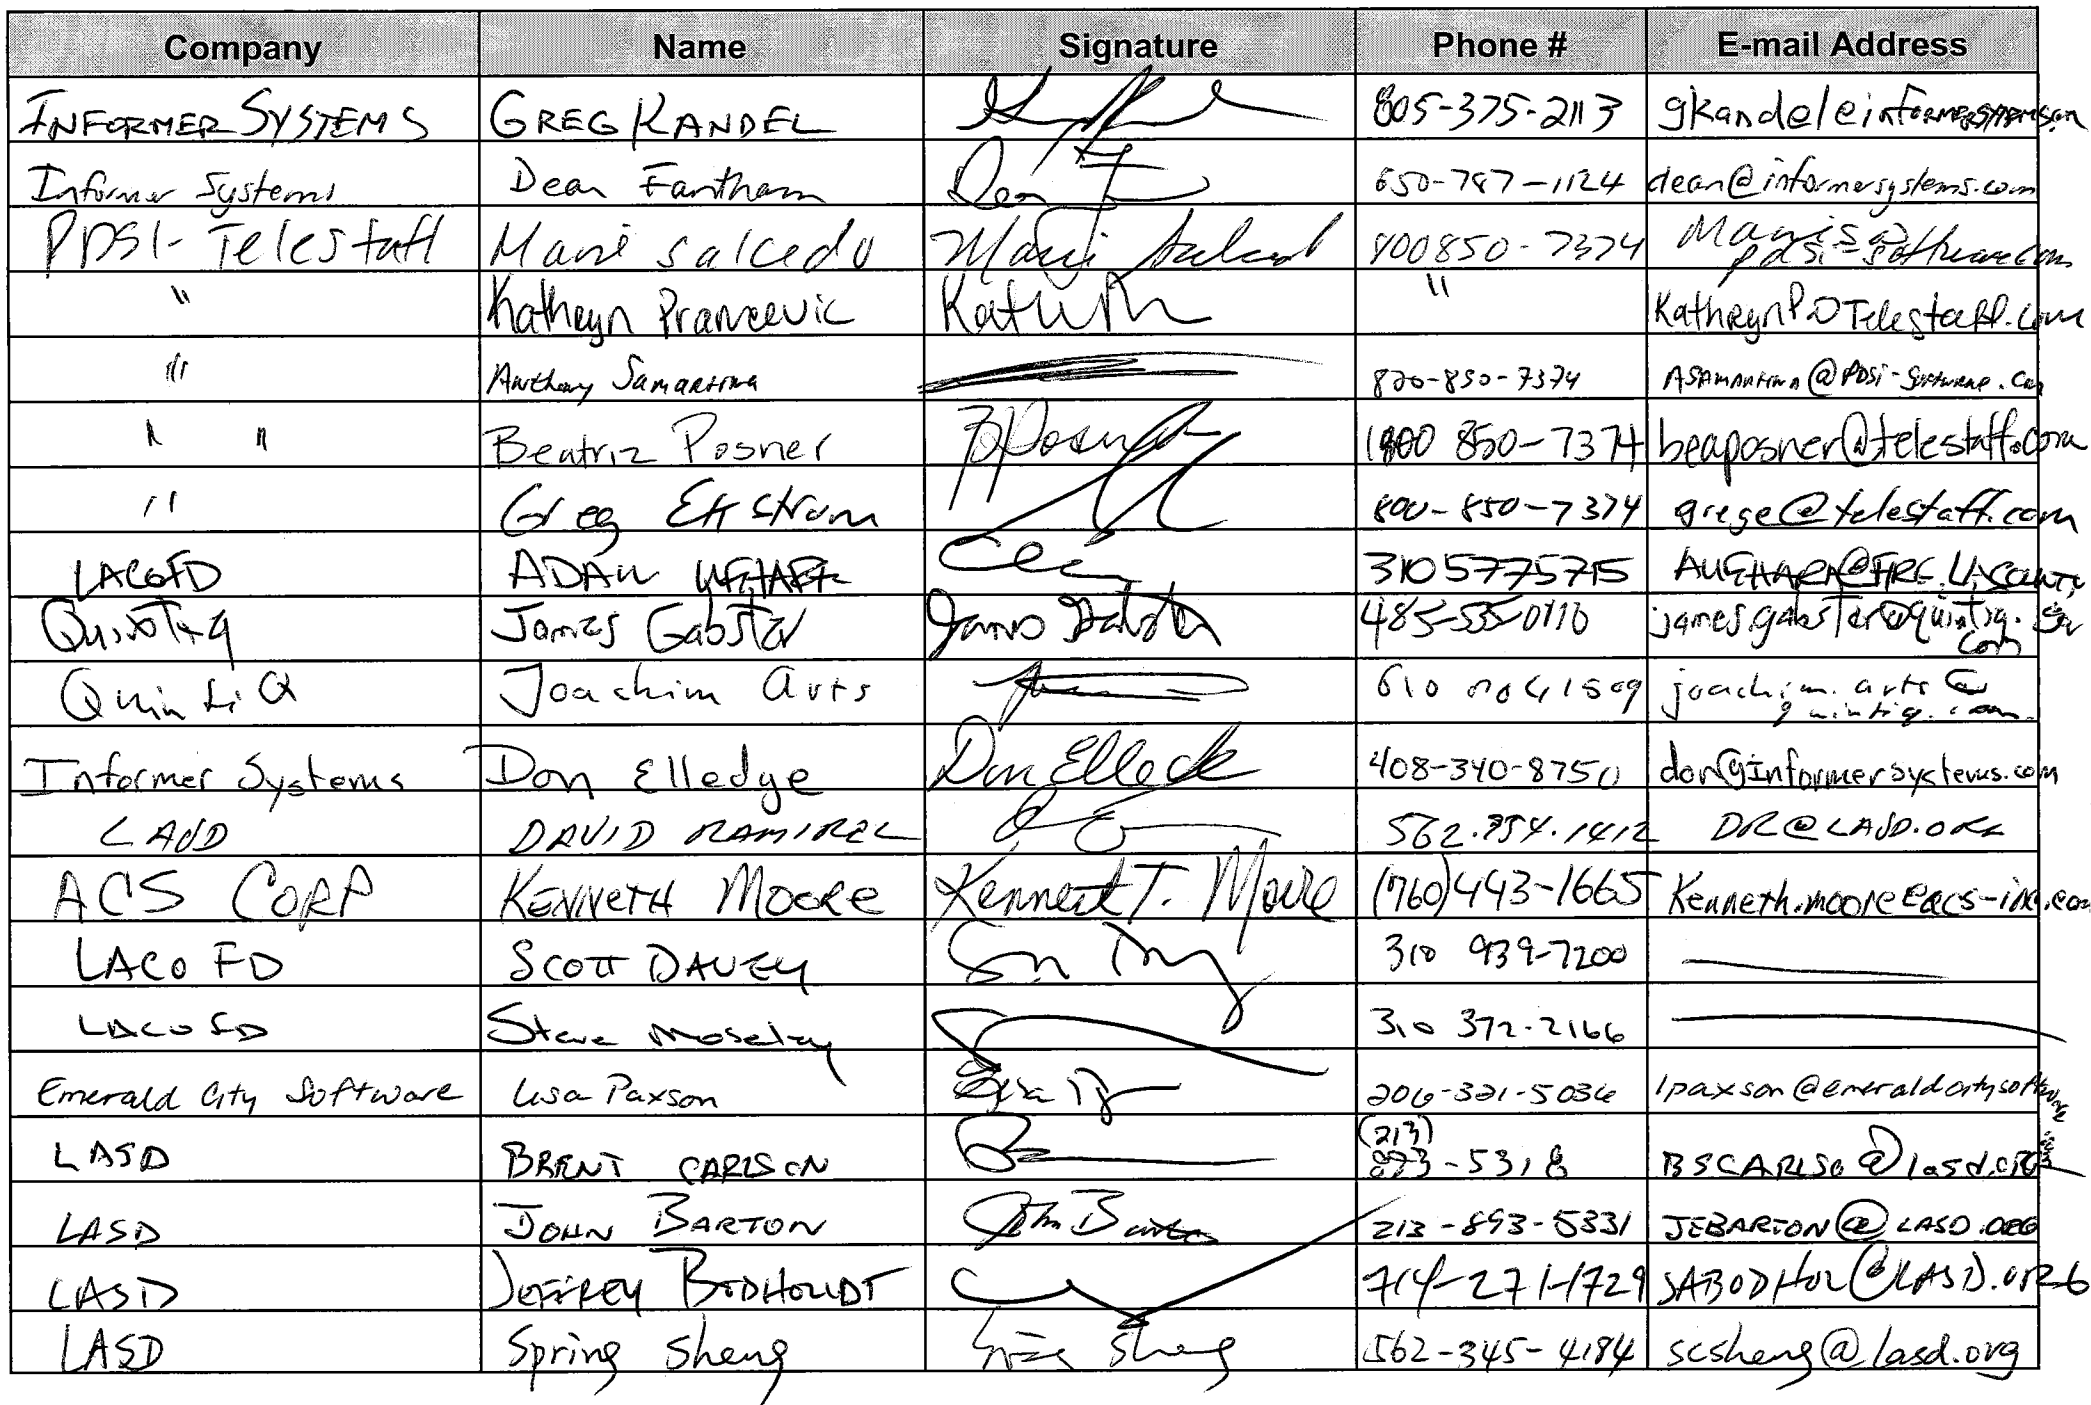 Company Name Signature Phone # E-mail Address
INFORMER SYSTEMS GREG KANDEL 805-375-2113 gkandel@informersystems.com
Informer Systems Dean Fantham Dean 650-787-1124 dean@informersystems.com
PDSI-Telestaff Marie Salcedo Marie Salcedo 800850-7374 Maries@
pdsi-software.com
" Kathryn " KathrynP@Telestaff.com
" Anthony 800-850-7374
" " Beatriz Posner BPosner 1800 850-7374 beaposner@telestaff.com
" Greg Ekstrom 800-850-7374 grege@telestaff.com
LACOFD ADAN 310 5775715
Quintiq James Gabster James Gabster james.gabster@quintiq.
com
QuintiQ Joachim Arts joachim.arts@
quintiq.com
Informer Systems Don Elledge Don Elledge 408-340-8750 don@informersystems.com
LASD DAVID RAMIREZ DR@LASD.ORG
ACS CORP KENNETH MOORE Kenneth T. Moore (760)443-1665 Kenneth.moore@acs-inc.com
LACOFD SCOTT DAVEY 310 939-7200
LACOFD Steve Moseley 310 372-2166
Emerald City Software Lisa Paxson Lisa 206-321-5036 lpaxson@emeraldcitysoftware
LASD BRENT CARLSON (213)
893-5318 BSCARLSO@lasd.org
LASD JOHN BARTON John Barton 213-893-5331 JEBARTON@LASD.ORG
LASD JEFFREY BODHOLDT 714-271-1729 SABODHOL@LASD.ORG
LASD Spring Sheng Sheng 562-345-4184 scsheng@lasd.org